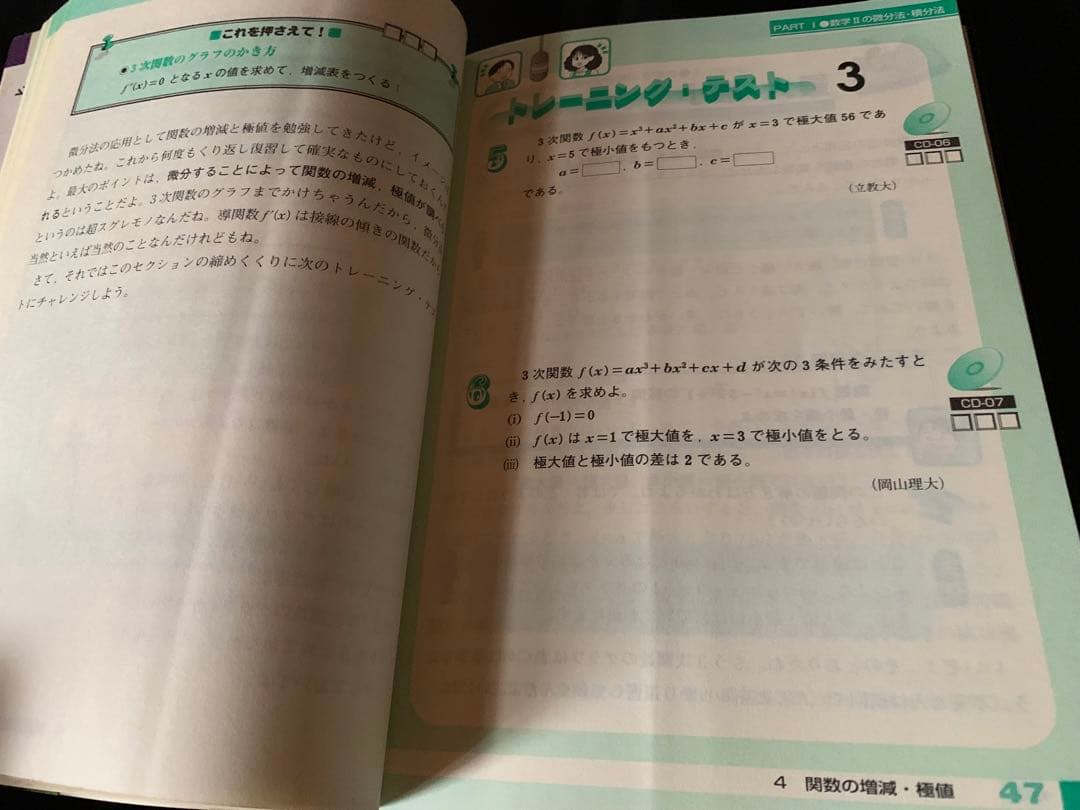 ■これを押さえて！■
●3次関数のグラフのかき方
f′(x)=0 となる x の値を求めて，増減表をつくる！
微分法の応用として関数の増減と極値を勉強してきたけど，イメージ
つかめたね。これから何度もくり返し復習して確実なものにしておく
よ。最大のポイントは，微分することによって関数の増減，極値が調べ
れるということだよ。3次関数のグラフまでかけちゃうんだから，微分
というのは超スグレモノなんだね。導関数 f′(x) は接線の傾きの関数だから
当然といえば当然のことなんだけれどもね。
さて，それではこのセクションの締めくくりに次のトレーニング・テス
トにチャレンジしよう。
PART I 数学Ⅱの微分法・積分法
トレーニング・テスト 3
5 3次関数 f(x)=x³+ax²+bx+c が x=3 で極大値 56 であ
り，x=5 で極小値をもつとき，
a=□，b=□，c=□
である。
（立教大）
CD-06
6 3次関数 f(x)=ax³+bx²+cx+d が次の3条件をみたすと
き，f(x) を求めよ。
(i) f(−1)=0
(ii) f(x) は x=1 で極大値を，x=3 で極小値をとる。
(iii) 極大値と極小値の差は 2 である。
（岡山理大）
CD-07
4 関数の増減・極値 47